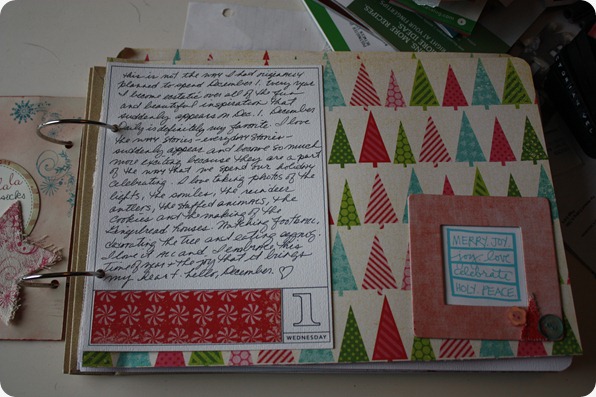 This is not the way I had originally
planned to spend December 1. Every year
I become ecstatic over all of the fun
and beautiful inspiration that
suddenly appears on Dec. 1. December
Daily is definitely my favorite. I love
the way stories - everyday stories -
suddenly appear and become so much
more exciting because they are a part
of the way that we spend our holiday
celebrating. I love taking photos of the
lights, the smiles, the reindeer
antlers, the stuffed animals, & the
cookies and the making of the
gingerbread houses. Matching footsami,
decorating the tree and eating eggnog.
I love it all and I embrace this
time of year & the joy that it brings
my heart. hello, December. ♡
1
WEDNESDAY
MERRY JOY
joy love
celebrate
HOLY PEACE
la
MORE IDEAS. RECIPES.
RIGHT AT YOUR FINGERTIPS